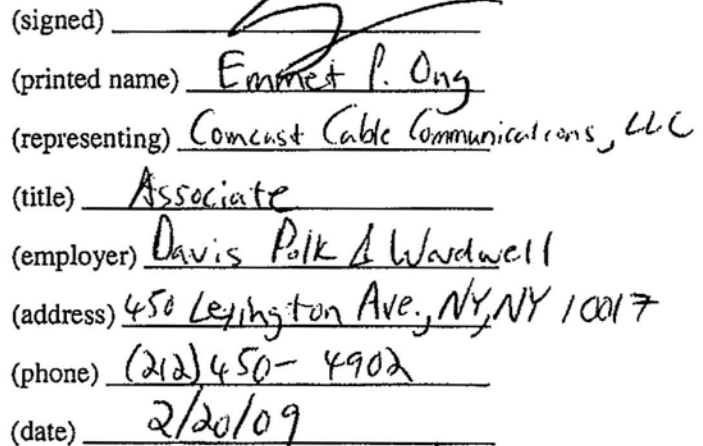 (signed)
(printed name) Emmet P. Ong
(representing) Comcast Cable Communications, LLC
(title) Associate
(employer) Davis Polk & Wardwell
(address) 450 Lexington Ave., NY, NY 10017
(phone) (212) 450-4902
(date) 2/20/09